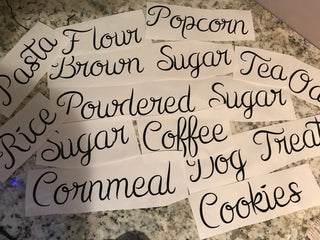 Popcorn
Pasta
Flour
Brown Sugar
Tea
Powdered Sugar
Rice
Sugar
Coffee
Dog Treat
Cornmeal
Cookies